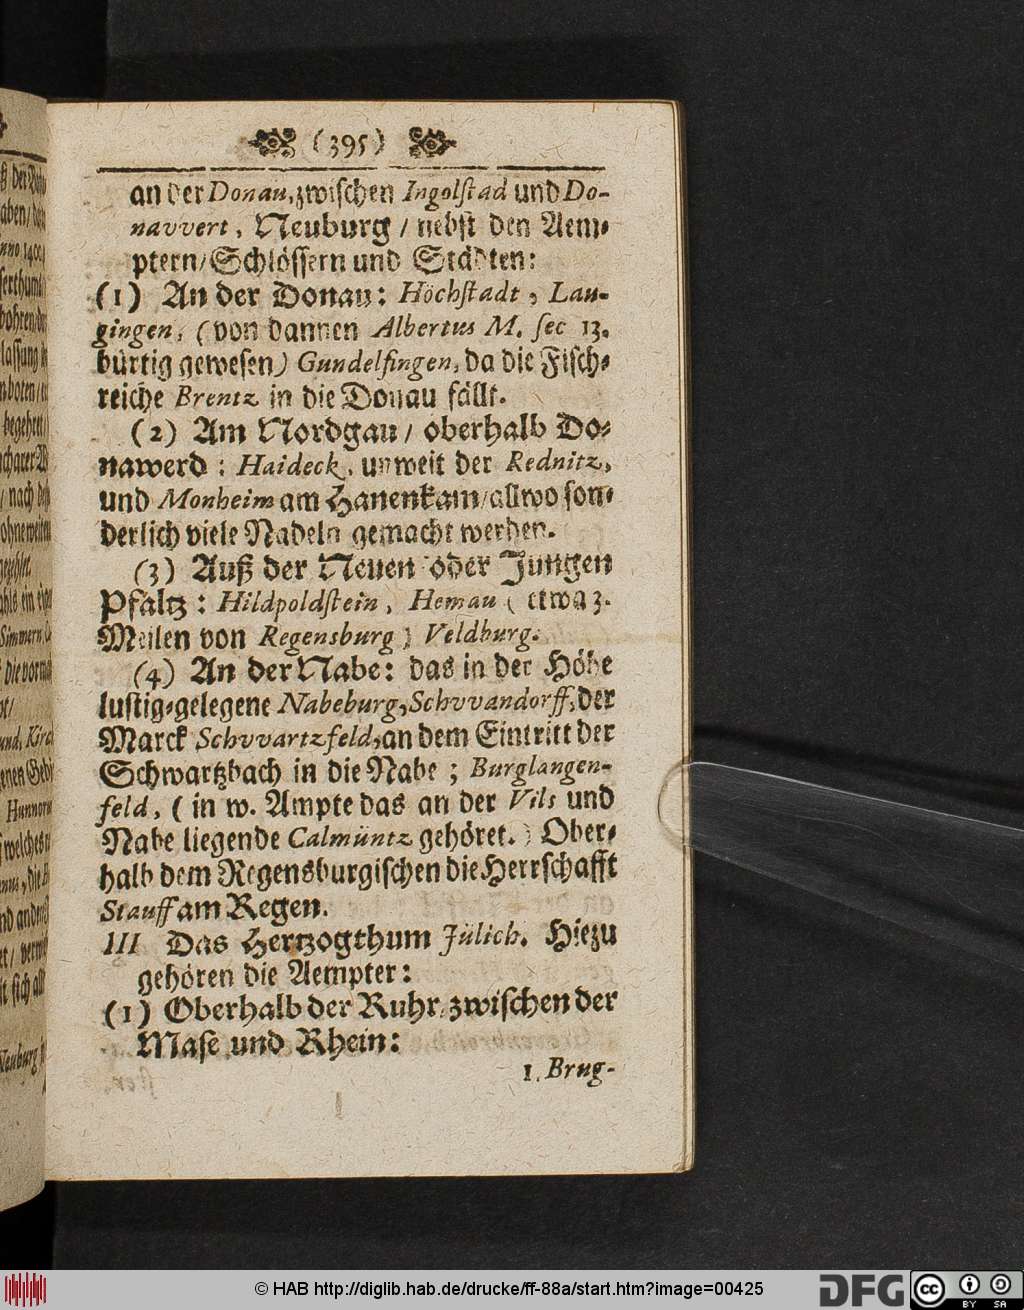 (395)
an der Donau, zwischen Ingolstad und Do-
navvert, Neuburg / nebst den Aem-
ptern / Schlössern und Städten:
(1) An der Donau: Höchstadt, Lau-
gingen, (von dannen Albertus M. sec 13.
bürtig gewesen) Gundelfingen, da die Fisch-
reiche Brentz in die Donau fällt.
(2) Am Nordgau / oberhalb Do-
nawerd: Haideck, unweit der Rednitz,
und Monheim am Hanenkam / allwo son-
derlich viele Nadeln gemacht werden.
(3) Auß der Neuen oder Jungen
Pfaltz: Hildpoldstein, Hemau (etwa 3.
Meilen von Regensburg) Veldburg.
(4) An der Nabe: das in der Höhe
lustig-gelegene Nabeburg, Schvvandorff, der
Marck Schvvartzfeld, an dem Eintritt der
Schwartzbach in die Nabe; Burglangen-
feld, (in w. Ampte das an der Vils und
Nabe liegende Calmüntz gehöret.) Ober-
halb dem Regensburgischen die Herrschafft
Stauff am Regen.
III Das Hertzogthum Jülich. Hiezu
gehören die Aempter:
(1) Oberhalb der Ruhr, zwischen der
Mase und Rhein:
1. Brug-
© HAB http://diglib.hab.de/drucke/ff-88a/start.htm?image=00425
DFG
cc
BY SA